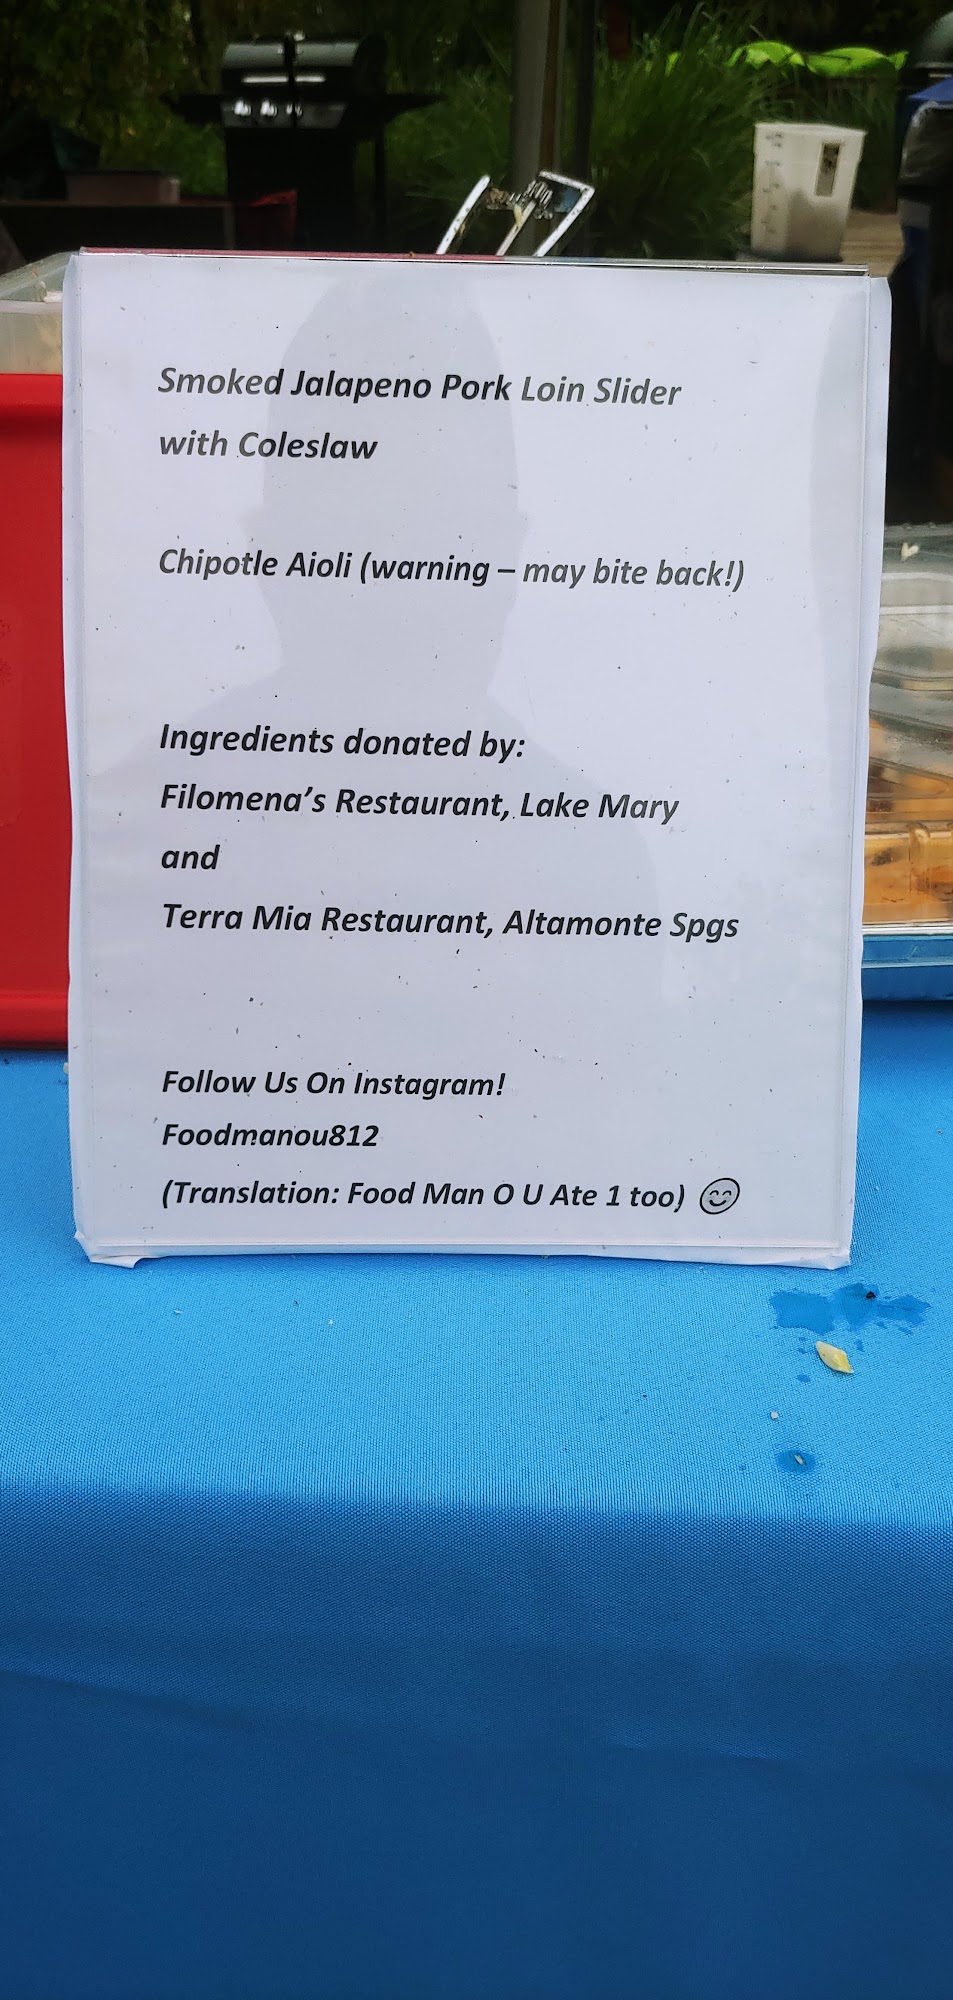 Smoked Jalapeno Pork Loin Slider
with Coleslaw
Chipotle Aioli (warning – may bite back!)
Ingredients donated by:
Filomena's Restaurant, Lake Mary
and
Terra Mia Restaurant, Altamonte Spgs
Follow Us On Instagram!
Foodmanou812
(Translation: Food Man O U Ate 1 too) 😊